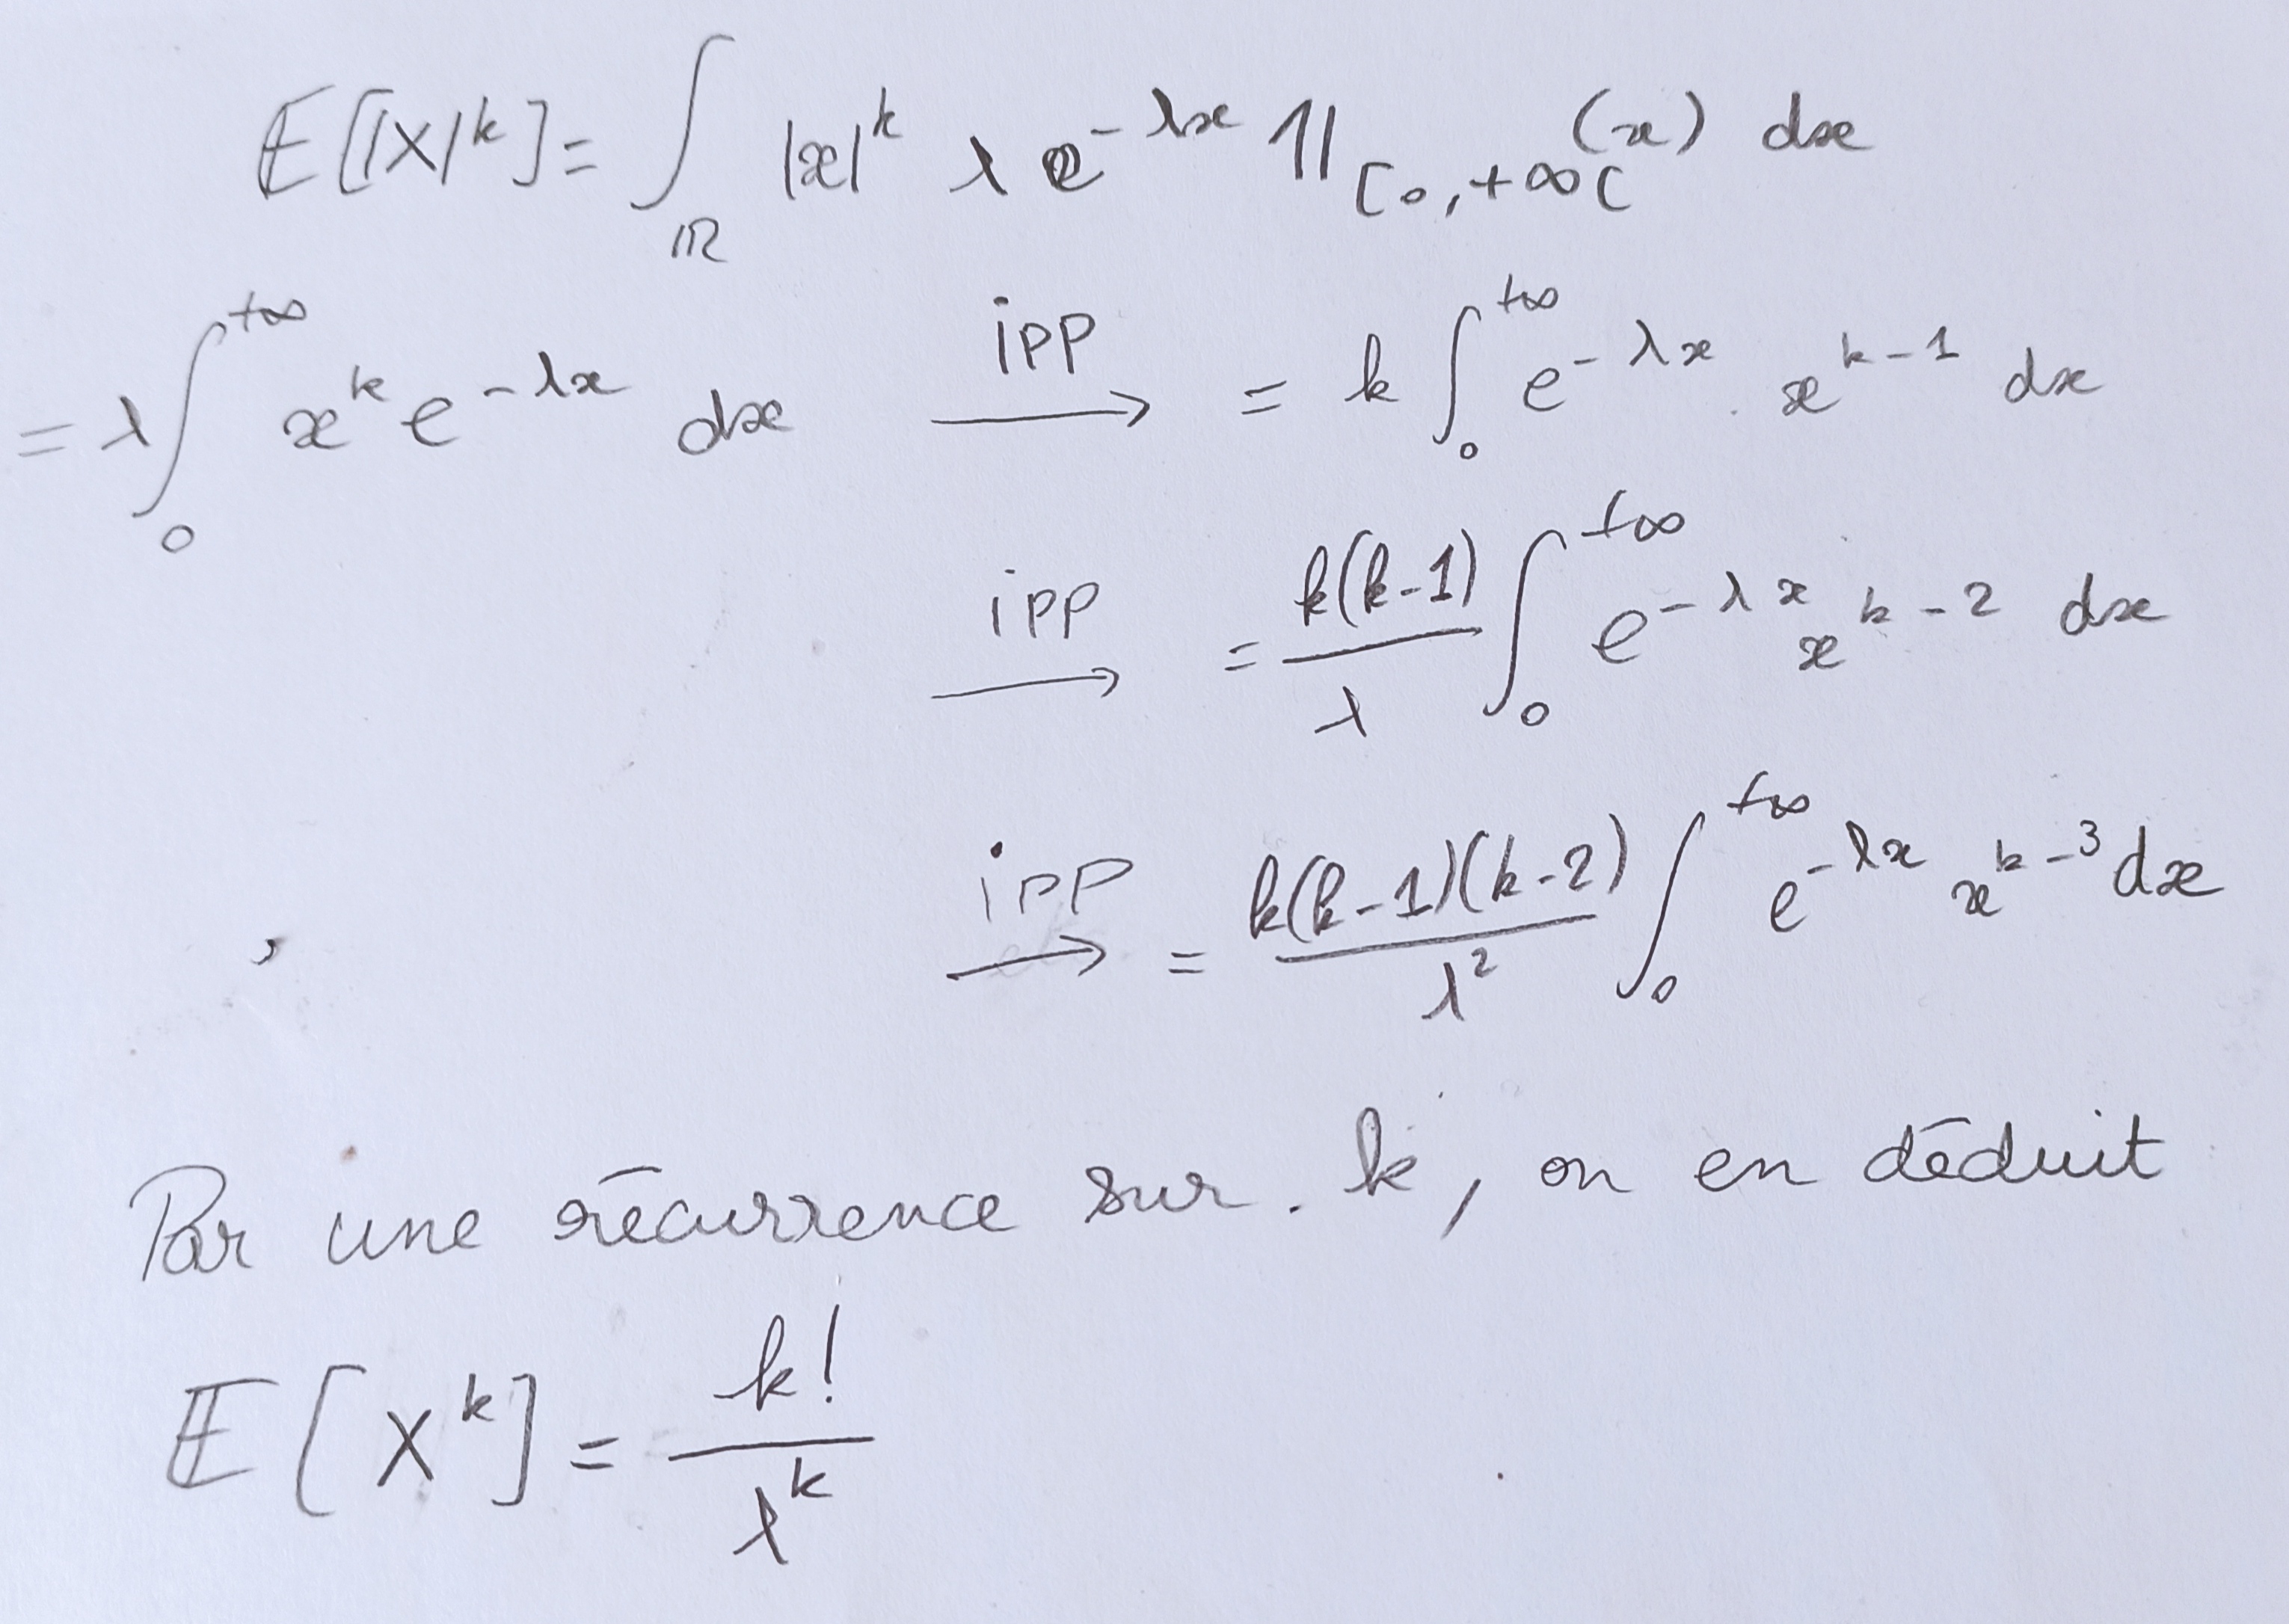 𝔼[|X|^k] = ∫_ℝ |x|^k λ e^{-λx} 𝟙_{[0,+∞[}(x) dx
= λ ∫_0^{+∞} x^k e^{-λx} dx ipp → = k ∫_0^{+∞} e^{-λx} x^{k-1} dx
ipp → = k(k-1)/λ ∫_0^{+∞} e^{-λx} x^{k-2} dx
ipp → = k(k-1)(k-2)/λ² ∫_0^{+∞} e^{-λx} x^{k-3} dx
Par une récurrence sur k, on en déduit
𝔼[X^k] = k!/λ^k